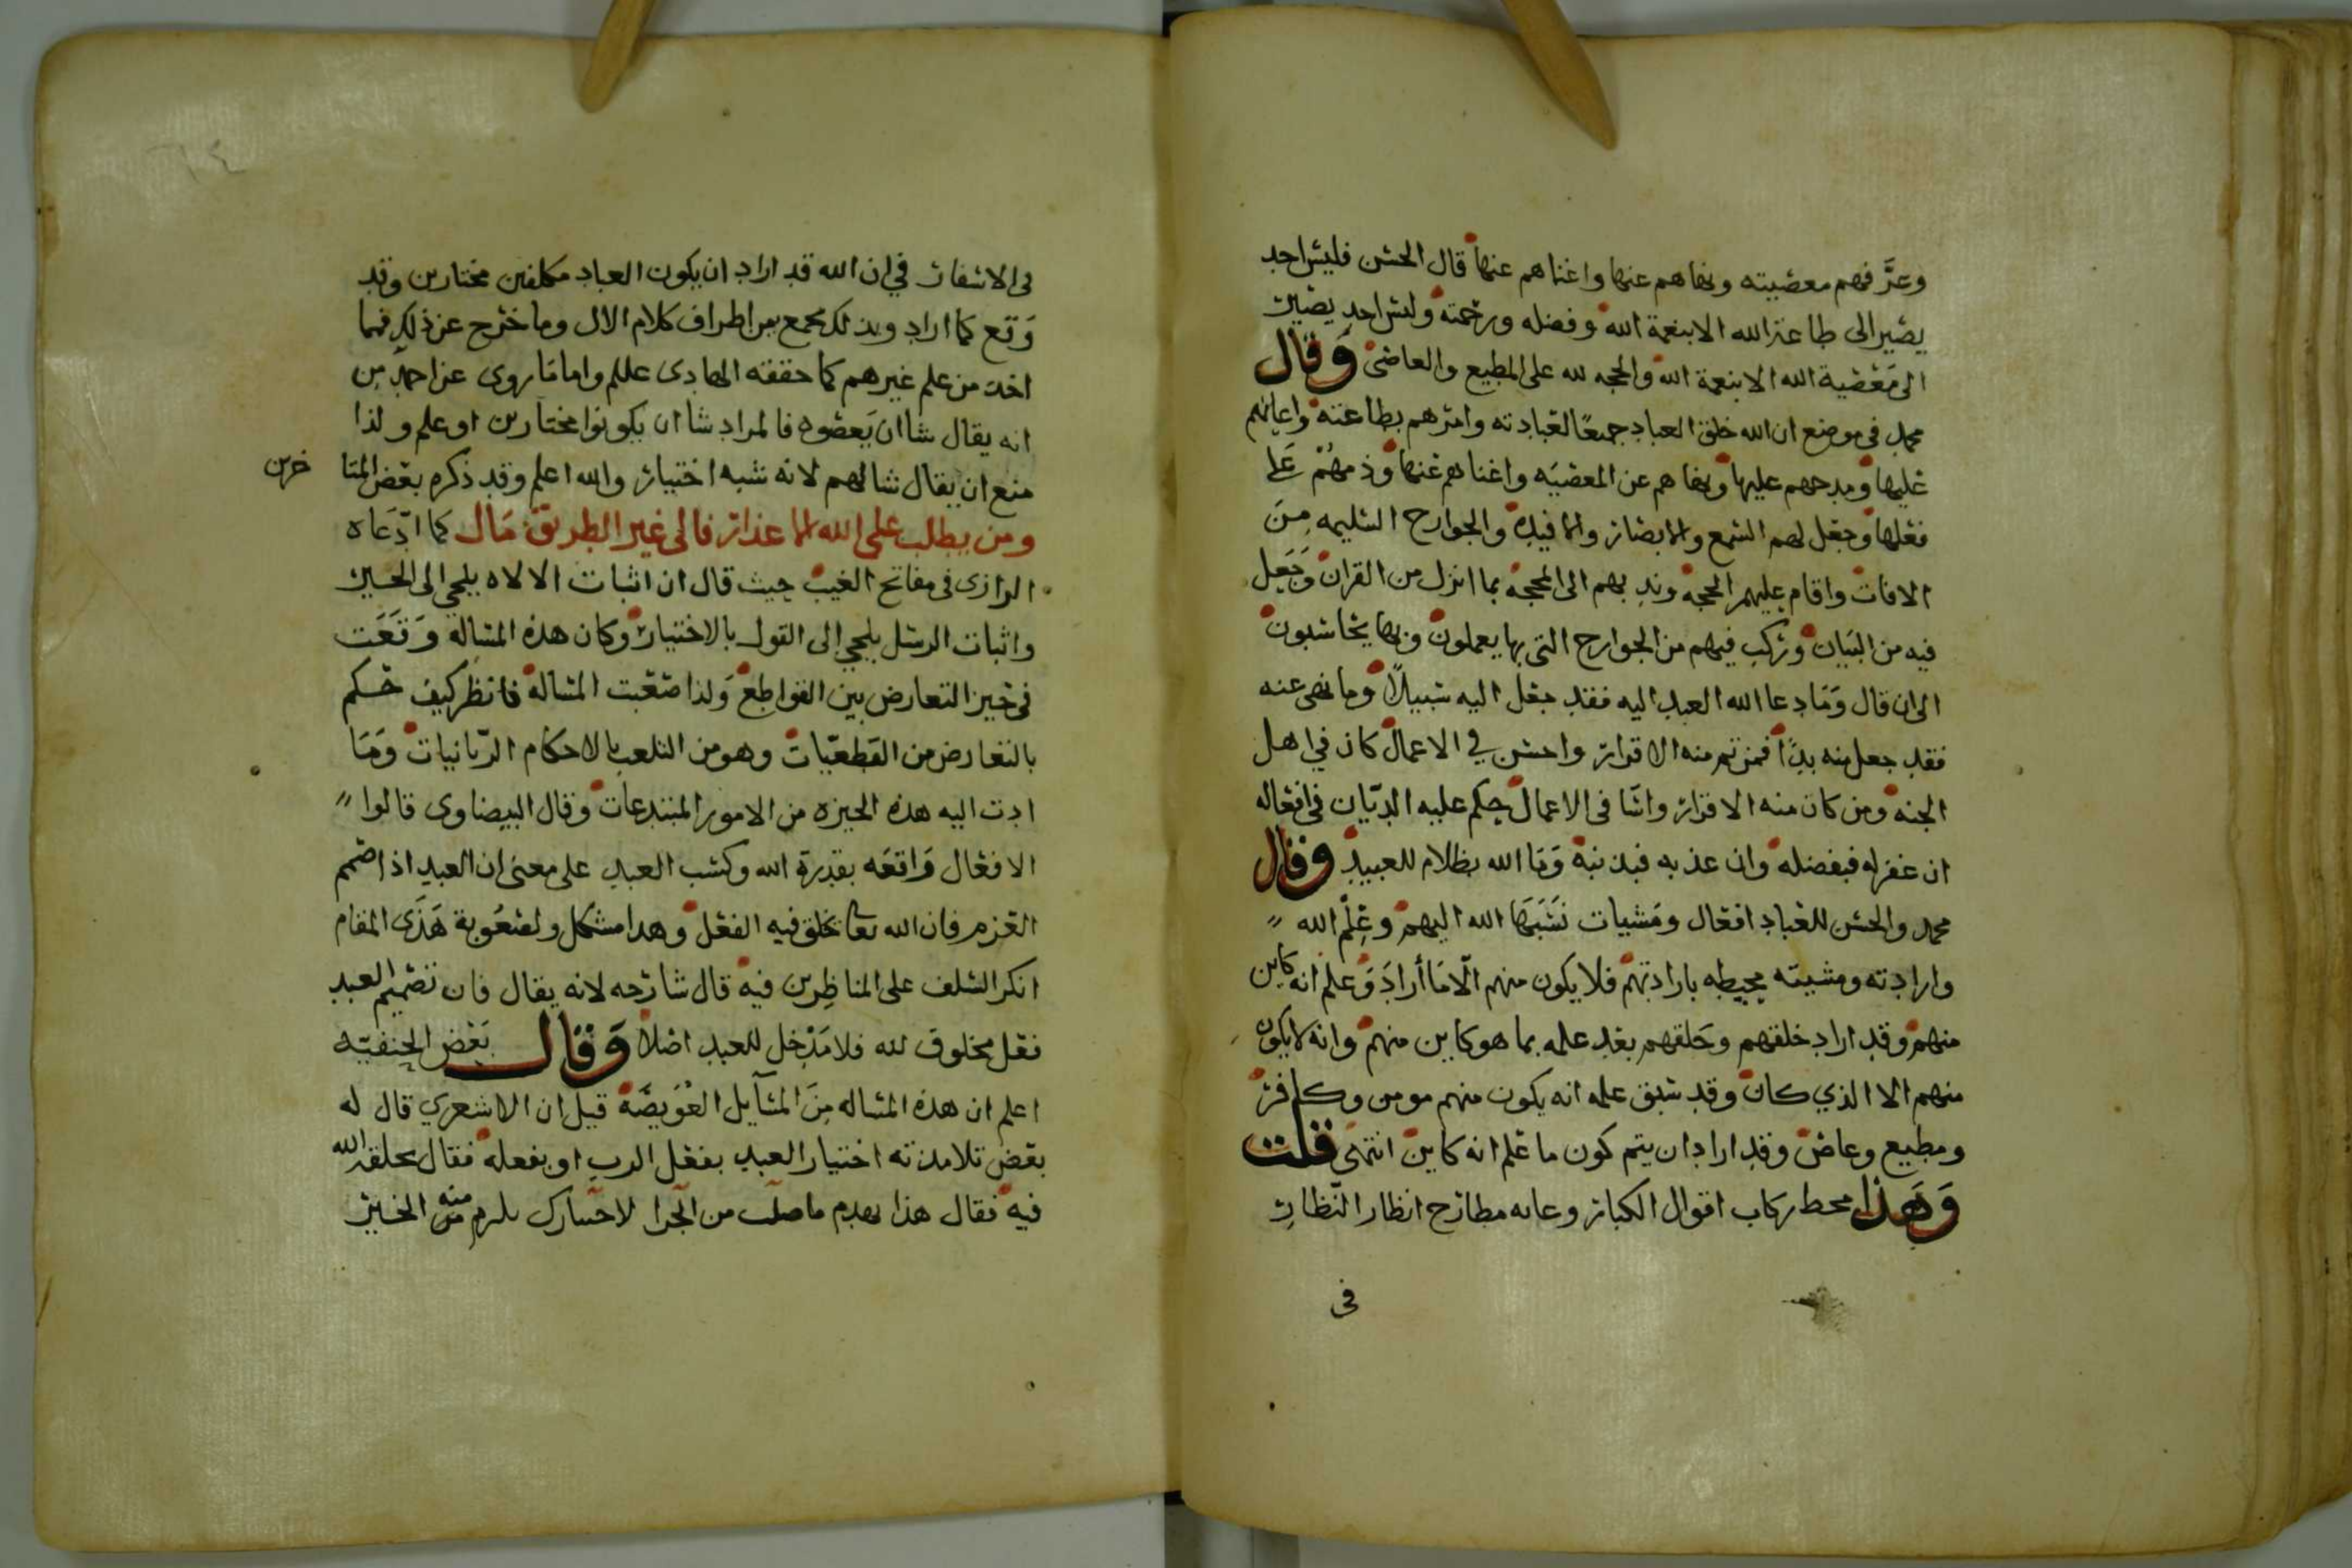 وعرَّفهم معصيته ونهاهم عنها واغناهم عنها قال الحسن فليس احد
يصير الى طاعة الله الا بنعمة الله وفضله ورحمته وليس احد يصير
الى مَعْصية الله الا بنعمة الله والحجه لله على المطيع والعاصي وَقال
محمد في موضع ان الله خلق العباد جميعًا لعبادته وامرهم بطاعته واعانهم
عليها ومدحهم عليها ونهاهم عن المعصيَه واغناهم عنها وذمهُمْ عَلى
فعلها وجعل لهم السمع والابصار والافيدة والجوارح السليمه مِنَ
الافات واقام عليهم الحجة وندبهم الى المحجة بما انزل من القران وَجَعل
فيه من البيَان وركب فيهم من الجوارح التي بها يعملون وبها يحاسبون
الى ان قال وَمَا دعا الله العبد اليه فقد جعل اليه سبيلاً وما نهى عنه
فقد جعل منه بدًا فمن تم منه الاقرار واحسن في الاعمال كان في اهل
الجنه ومن كان منه الاقرار واسَا في الاعمال حكم عليه الديّان في افعاله
ان غفر له فبفضله وان عذبه فبذنبه وَمَا الله بظلام للعبيد وقال
محمد والحسن للعباد افعال ومَشيات نَسَبَهَا الله اليهم وعِلْم الله
وارادته ومشيته محيطه بارادتهم فلا يكون منهم الّا مَا أرادَ وَعلم انه كاين
منهم وقد اراد خلقهم وخلقهم بعد علمه بما هو كاين منهم وانه لا يكون
منهم الا الذي كان وقد سبق علمه انه يكون منهم مومن وكافر
ومطيع وعاص وقد اراد ان يتم كون ما علم انه كاين انتهى قلت
وَهذا محط ركاب اقوال الكبار وعانه مطارح انظار النّظار
في
لى الاسفار في ان الله قد اراد ان يكون العباد مكلفين مختارين وقد
وَقع كما اراد وبذلك يجمع بين اطراف كلام الال وما خرج عن ذلك فهما
اخذ من علم غيرهم كما حققه الهادي عللم واما مَا روى عن احمد مِن
انه يقال شا ان يَعصوه فالمراد شا ان يكونوا مختارين او علم ولذا
منع ان يقال شا لهم لانه شبه اختيار والله اعلم وقد ذكره بعض المتا خرين
ومن يطلب على الله الاعذار فالى غير الطريق مَال كما ادّعَاه
الرازي في مفاتح الغيب حيث قال ان اثبات الالاه يلجي الى الجبر
واثبات الرسل يلجي الى القول بالاختيار وكان هذه المسالة وَقَعَت
في حيز التعارض بين القواطع وَلذا صَعُبت المسالة فانظر كيف حكم
بالتعارض من القطعيّات وهو من التلعب بالاحكام الرّبانيات وَمَا
ادت اليه هذه الحيزه من الامور المبتدعات وقال البيضاوي قالوا
الافعال وَاقعَه بقدرة الله وكسب العبد على معنى ان العبد اذا صمم
العَزم فان الله تعا يخلق فيه الفعل وهدا مشكل ولصعُوبة هَذَى المقام
انكر السلف على المناظِرين فيه قال شارحه لانه يقال فان تصميم العبد
فعل مخلوق لله فلا مَدْخل للعبد اصْلا وَقال بَعْض الحنفيّه
اعلم ان هذه المساله مِنَ المسآيل العْوَيصَة قيل ان الاشعري قال له
بعض تلامذته اختيار العبد بفعل الرب او بفعله فقال بخلق الله
فيه فقال هذا يهدم ما صلت من الجرا لاختيارك يلزم منه الجبر